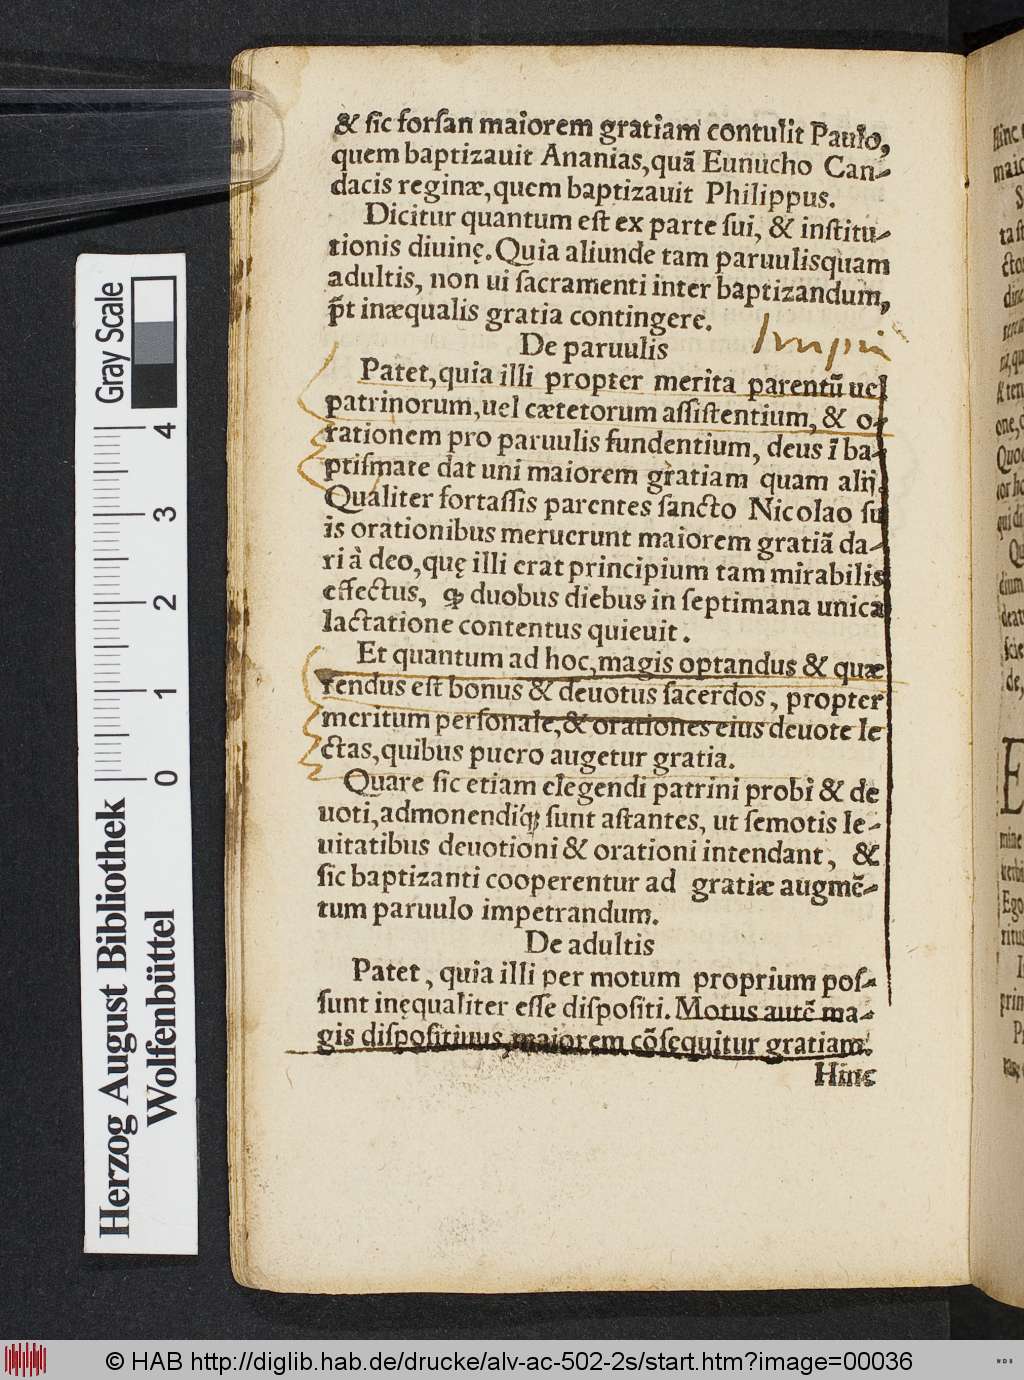 & sic forsan maiorem gratiam contulit Paulo,
quem baptizauit Ananias, quã Eunucho Can-
dacis reginæ, quem baptizauit Philippus.
Dicitur quantum est ex parte sui, & institu-
tionis diuinę. Quia aliunde tam paruulisquam
adultis, non ui sacramenti inter baptizandum,
p̃t inæqualis gratia contingere.
De paruulis
Patet, quia illi propter merita parentũ uel
patrinorum, uel cætetorum assistentium, & o-
rationem pro paruulis fundentium, deus ĩ ba-
ptismate dat uni maiorem gratiam quam alij.
Qualiter fortassis parentes sancto Nicolao su
is orationibus meruerunt maiorem gratiã da-
ri à deo, quę illi erat principium tam mirabilis
effectus, ꝙ duobus diebus in septimana unica
lactatione contentus quieuit.
Et quantum ad hoc, magis optandus & quæ
rendus est bonus & deuotus sacerdos, propter
meritum personale, & orationes eius deuote le
ctas, quibus puero augetur gratia.
Quare sic etiam elegendi patrini probi & de
uoti, admonendiq́ꝫ sunt astantes, ut semotis le-
uitatibus deuotioni & orationi intendant, &
sic baptizanti cooperentur ad gratiæ augmẽ-
tum paruulo impetrandum.
De adultis
Patet, quia illi per motum proprium pos-
sunt inęqualiter esse dispositi. Motus autẽ ma-
gis dispositiuus, maiorem cõsequitur gratiam.
Hinc
Gray Scale
4
3
2
1
0
Herzog August Bibliothek
Wolfenbüttel
© HAB http://diglib.hab.de/drucke/alv-ac-502-2s/start.htm?image=00036